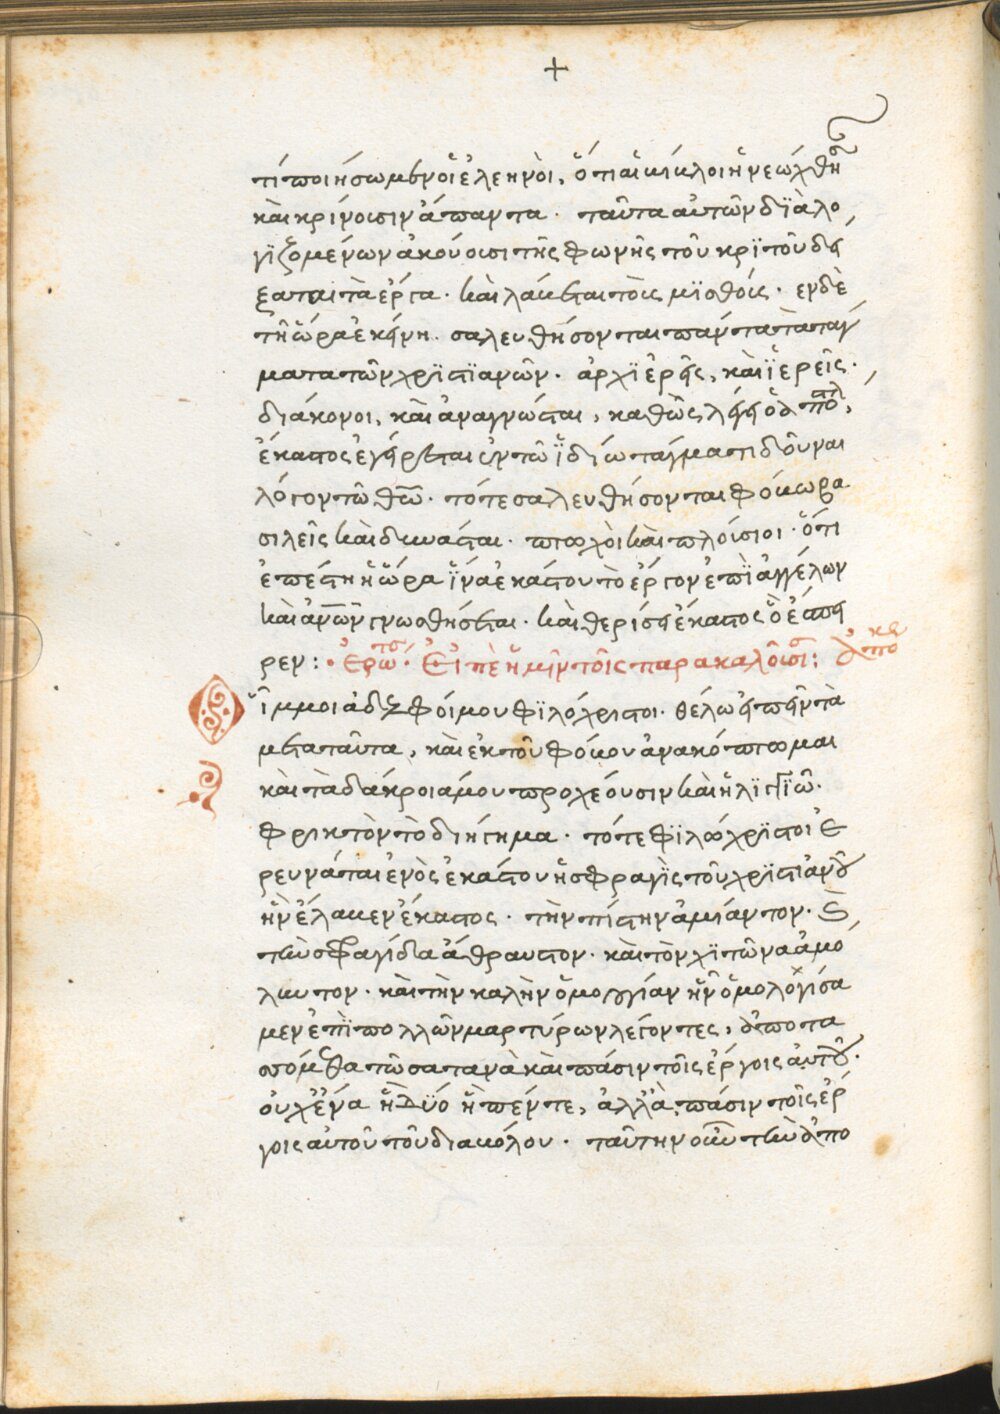 +
τί ποιήσωμεν οἱ ἐλεηνοί, ὅτι αἱ κίκλοι ἠνεώχθη
καὶ κρίνοισιν ἅπαντα · ταῦτα αὐτῶν διὰλο
γϊζομένων ἀκούοισι τῆς φωνῆς τοῦ κρϊτοῦ δεί
ξαται τὰ ἔργα · καὶ λάβεται τοὶς μϊσθοίς · ἐν δὲ
τῆ ὥρα ἐκείνη · σαλευθήσονται πάντα τὰ τάγ
ματα τῶν χρϊστϊανῶν · ἀρχϊἐρεῖς, καὶ ἱερεῖς ·
διάκονοι, καὶ ἀναγνῶσται, καθὼς λέγει ὁ ἀπό,
ἕκαστος ἐγείρεται ἐν τῶ ἰδίω τάγματι δοῦναι
λόγον τῶ θῶ · τότε σαλευθήσονται φόβω βα
σιλεῖς καὶ δυνάσται · πτωχοὶ καὶ πλοίσιοι · ὅτι
ἐπέστη ἡ ὥρα ἵνα ἑκάστου τὸ ἔργον ἐπὶ ἀγγέλων
καὶ ἀνῶν γνωσθήσεται · καὶ θερίσει ἕκαστος ὃ ἔσπει
ρεν : · ἐρώτ · Εἰπὲ ἡμῖν τοῖς παρακαλοῖσι : ἀπό
ἴμμοι ἀδελφοί μου φϊλόχριστοι · θέλω εἰπεῖν τὰ
μετα ταῦτα, καὶ ἐκ τοῦ φόβου ἀνακόπτομαι
καὶ τὰ δάκροιά μου προχεόυσιν καὶ
φρικτὸν τὸ διήγημα · τότε φϊλόχρϊστοι ἐ
ρευνάται ἑνὸς ἑκάστου ἡ σφραγὶς τοῦ χρϊστϊἀνοῦ
ἣν ἔλαβεν ἕκαστος · τὴν πίστην ἀμίαντον · καὶ
τὴν σφαγίδα ἄθραυστον · καὶ τὸν χϊτῶνα ἀμό
λυντον · καὶ τὴν καλὴν ὁμολογίαν ἣν ὁμολόγισα
μεν ἐπὶ πολλῶν μαρτύρων λέγοντες, ἀποτα
σόμεθα τῶ σατανὰ καὶ πάσιν τοῖς ἔργοις αὐτοῦ ·
οὐχ ἕνα ἢ δύο ἢ πέντε, ἀλλὰ πάσιν τοῖς ἔρ
γοις αὐτοῦ τοῦ διαβόλου · ταύτην οὖν τὴν ἀπο